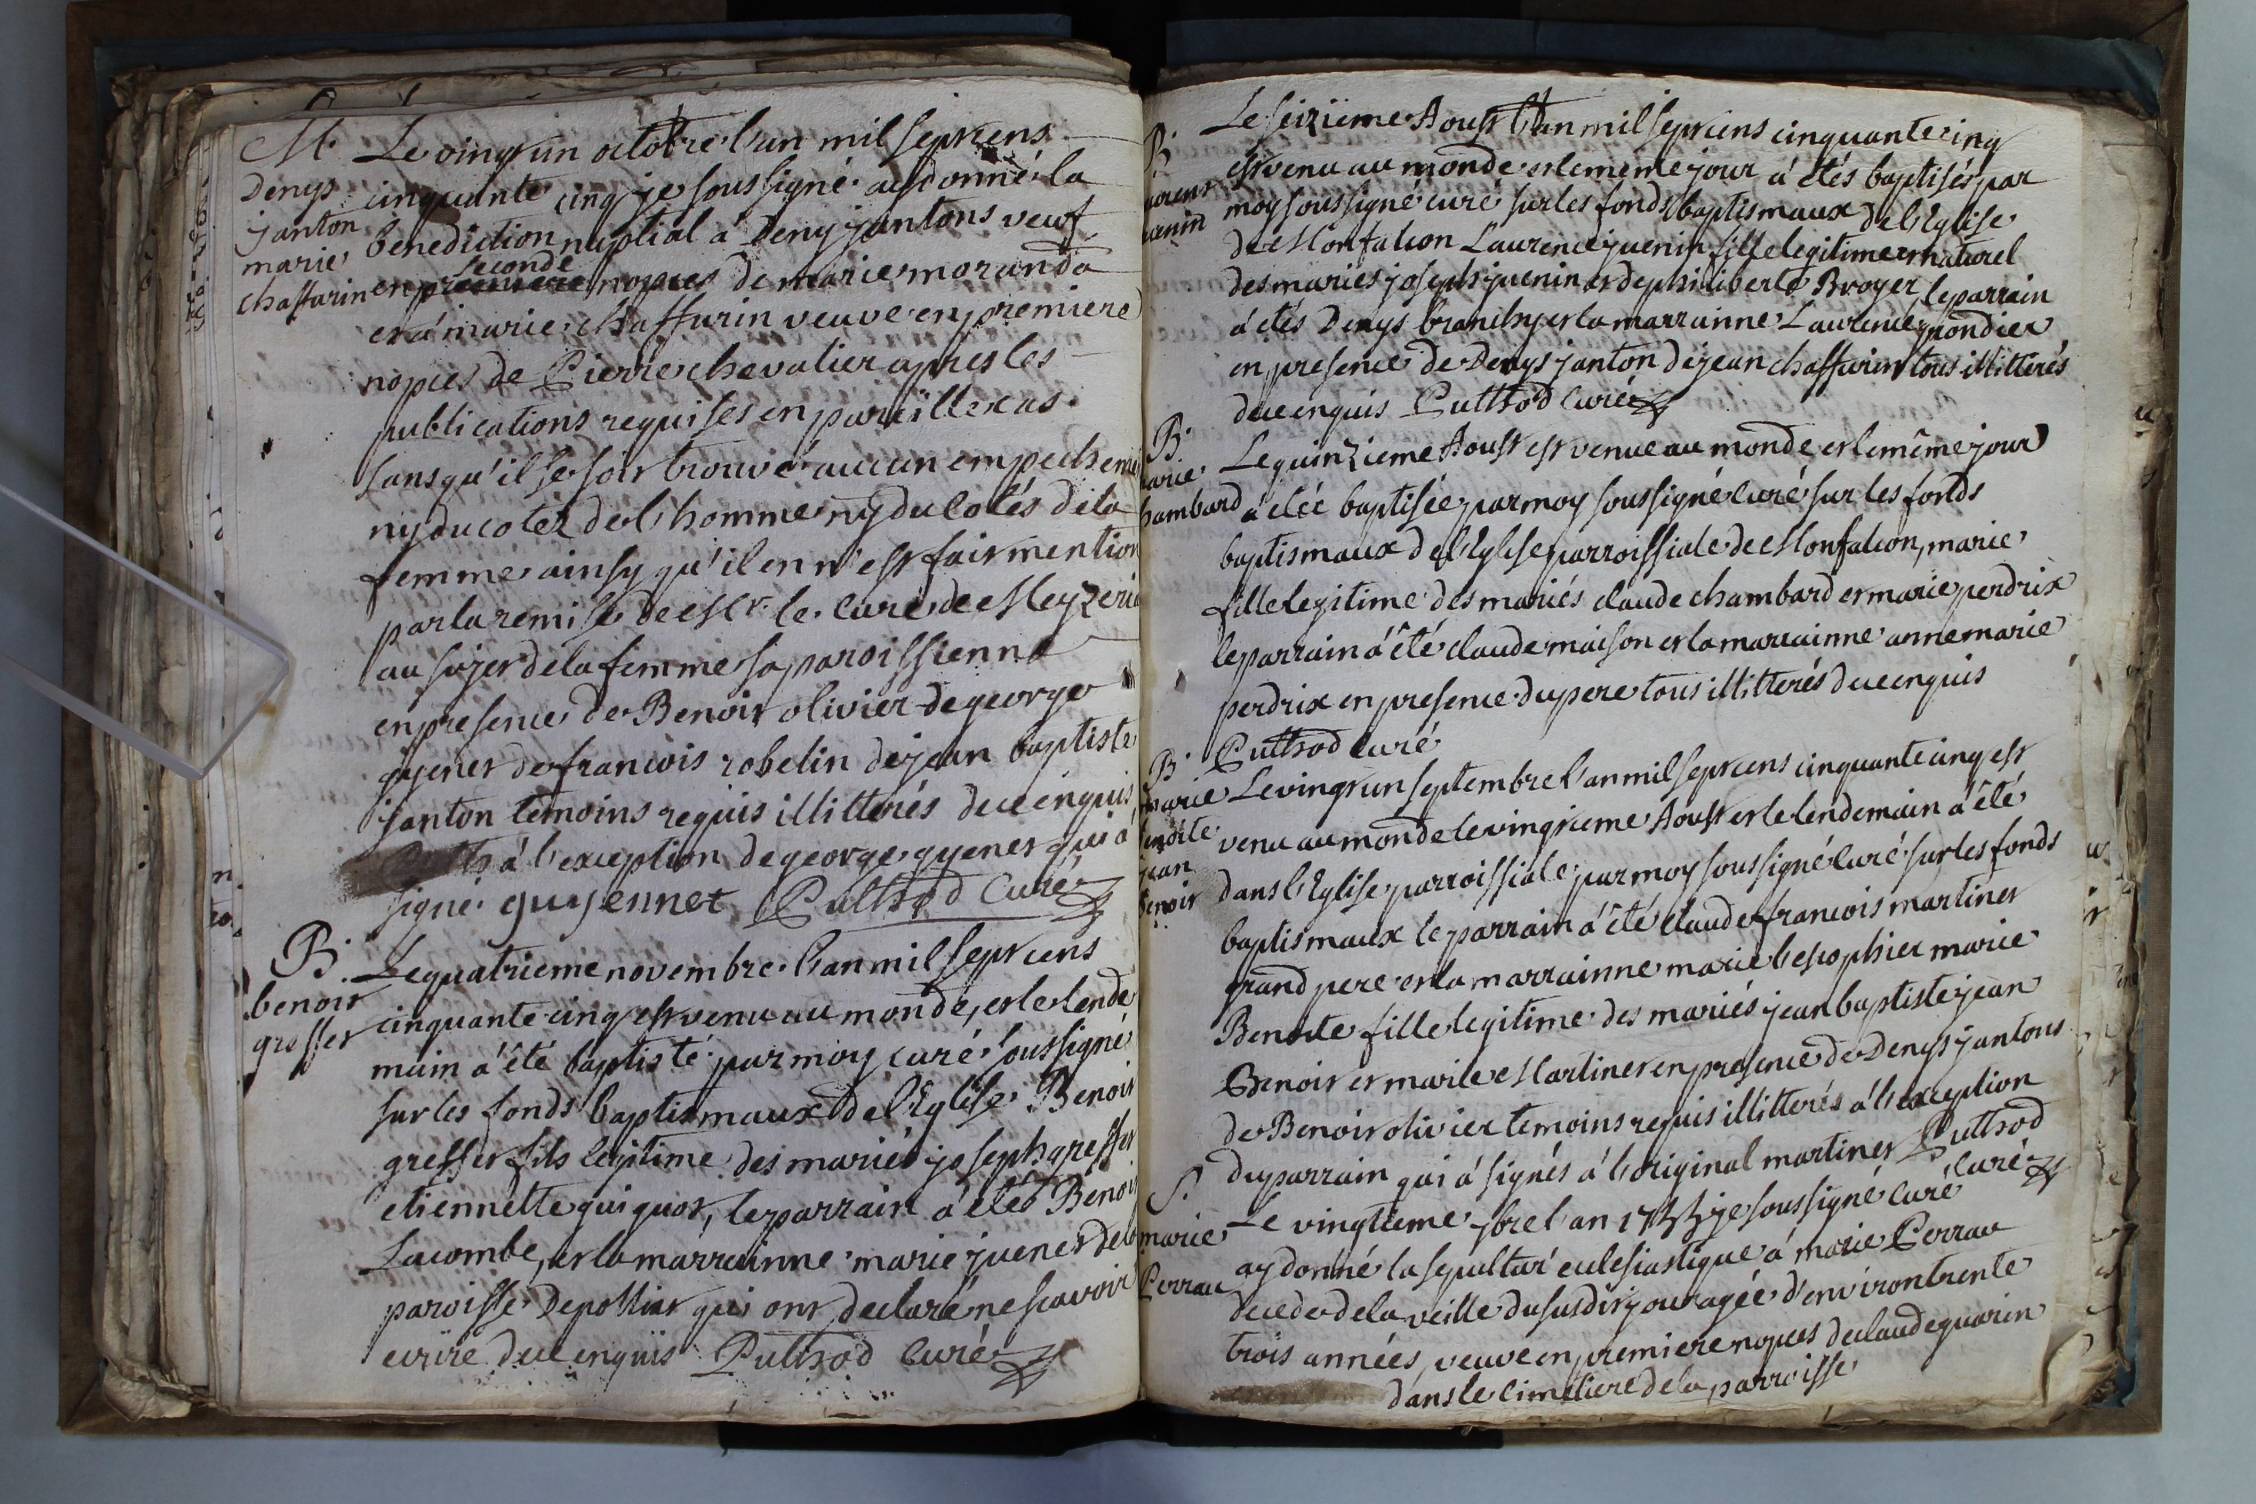 M.
Denys
janton
marie
chaffurin
Le vingt un octobre l'an mil sept cens
cinquante cinq je soussigné ay donné la
benediction nuptial à Deny jantons veuf
seconde
en premiere nopces de marie morand a
et à marie chaffurin veuve en premiere
nopces de Pierre chevalier apres les
publications requises en pareille cas
sans qu'il se soit trouvé aucun empechem
ny du cotez de l'homme ny du cotés de la
femme ainsy qu'il en n'est fait mention
par la remise de Mr. le curé de Meyzeria
au sujet de la femme sa paroissienne
en presence de Benoit olivier de george
gyenet de francois robelin de jean baptiste
janton temoins requis illitterés de ce enquis
à l'exception de george gyenet qui a
signé guyennet Puthod Curé
B.
benoit
greffet
Le quatrieme novembre l'an mil sept cens
cinquante cinq est venu au monde, et le lende
main a été baptisté par moy curé soussigné
sur les fonds baptismaux de l'Eglise Benoit
greffet fils legitime des mariés joseph greffet
etiennette guiguot, le parrain a etés Benoit
Lacombe, et la marrainne marie juenet de la
paroisse de polliat qui ont declaré ne scavoir
ecrire de ce enquis Puthod Curé
B.
aurent
uenin
Le seizieme Aoust l'an mil sept cens cinquante cinq
est venu au monde et le meme jour a étés baptisés par
moy soussigné curé sur les fonds baptismaux de l'Eglise
de Monfalcon Laurence juenin fille legitime et naturel
des mariés joseph juenin et de philiberte Broyer le parrain
a étés Denys branchy et la marrainne Laurence mondier
en presence de Denys janton de jean chaffurin tous illitterés
de ce enquis Puthod Curé
B.
arie
hambard
Le quinzieme Aoust est venue au monde et le même jour
a étée baptisée par moy soussigné curé sur les fonds
baptismaux de l'Eglise parroissiale de Monfalcon, marie
fille legitime des mariés claude chambard et marie perdrix
le parrain a été claude maison et la marrainne anne marie
perdrix en presence du pere tous illitterés de ce enquis
Puthod Curé
B.
marie
enoite
jean
Benoit
Le vingt un septembre l'an mil sept cens cinquante cinq est
venu au monde le vingtieme Aoust et le lendemain a été
dans l'Eglise parroissiale par moy soussigné curé sur les fonds
baptismaux le parrain a été claude francois martinet
grand pere et la marrainne marie bescophier marie
Benoite fille legitime des mariés jean baptiste jean
Benoit et marie Martinet en presence de Denys jantons
de Benoit olivier temoins requis illitterés à l'exception
du parrain qui a signés à l'original martinet Puthod
Curé
S.
marie
Perrau
Le vingtieme 7bre l'an 1755 je soussigné curé
ay donné la sepulture eclesiastique à marie Perrau
decede de la veille du susdit jour agée d'environ trente
trois années, veuve en premiere nopces de claude guarin
dans le cimetiere de la parroisse